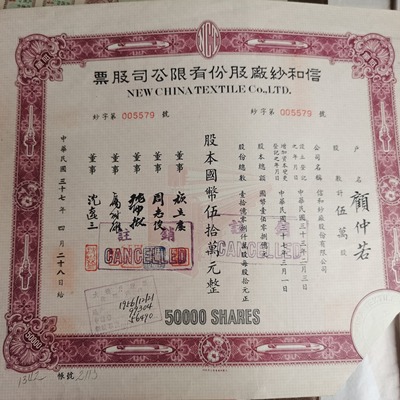 信和紗廠股份有限公司股票
NEW CHINA TEXTILE Co., LTD.
紗字第 005579 號
紗字第 005579 號
戶名 顧仲若
股數 計伍萬股
公司名稱 信和紗廠股份有限公司
設立登記之年月日 中華民國三十三年三月三日
增加資本變更登記之年月日 中華民國三十七年三月一日
股本總額 國幣壹佰零捌億元
股份總數 壹拾億零捌仟萬股每股拾元正
股本國幣伍拾萬元整
董事
董事
董事
董事
註銷
CANCELLED
註銷
CANCELLED
中華民國三十七年四月二十八日給
50000 SHARES
帳號